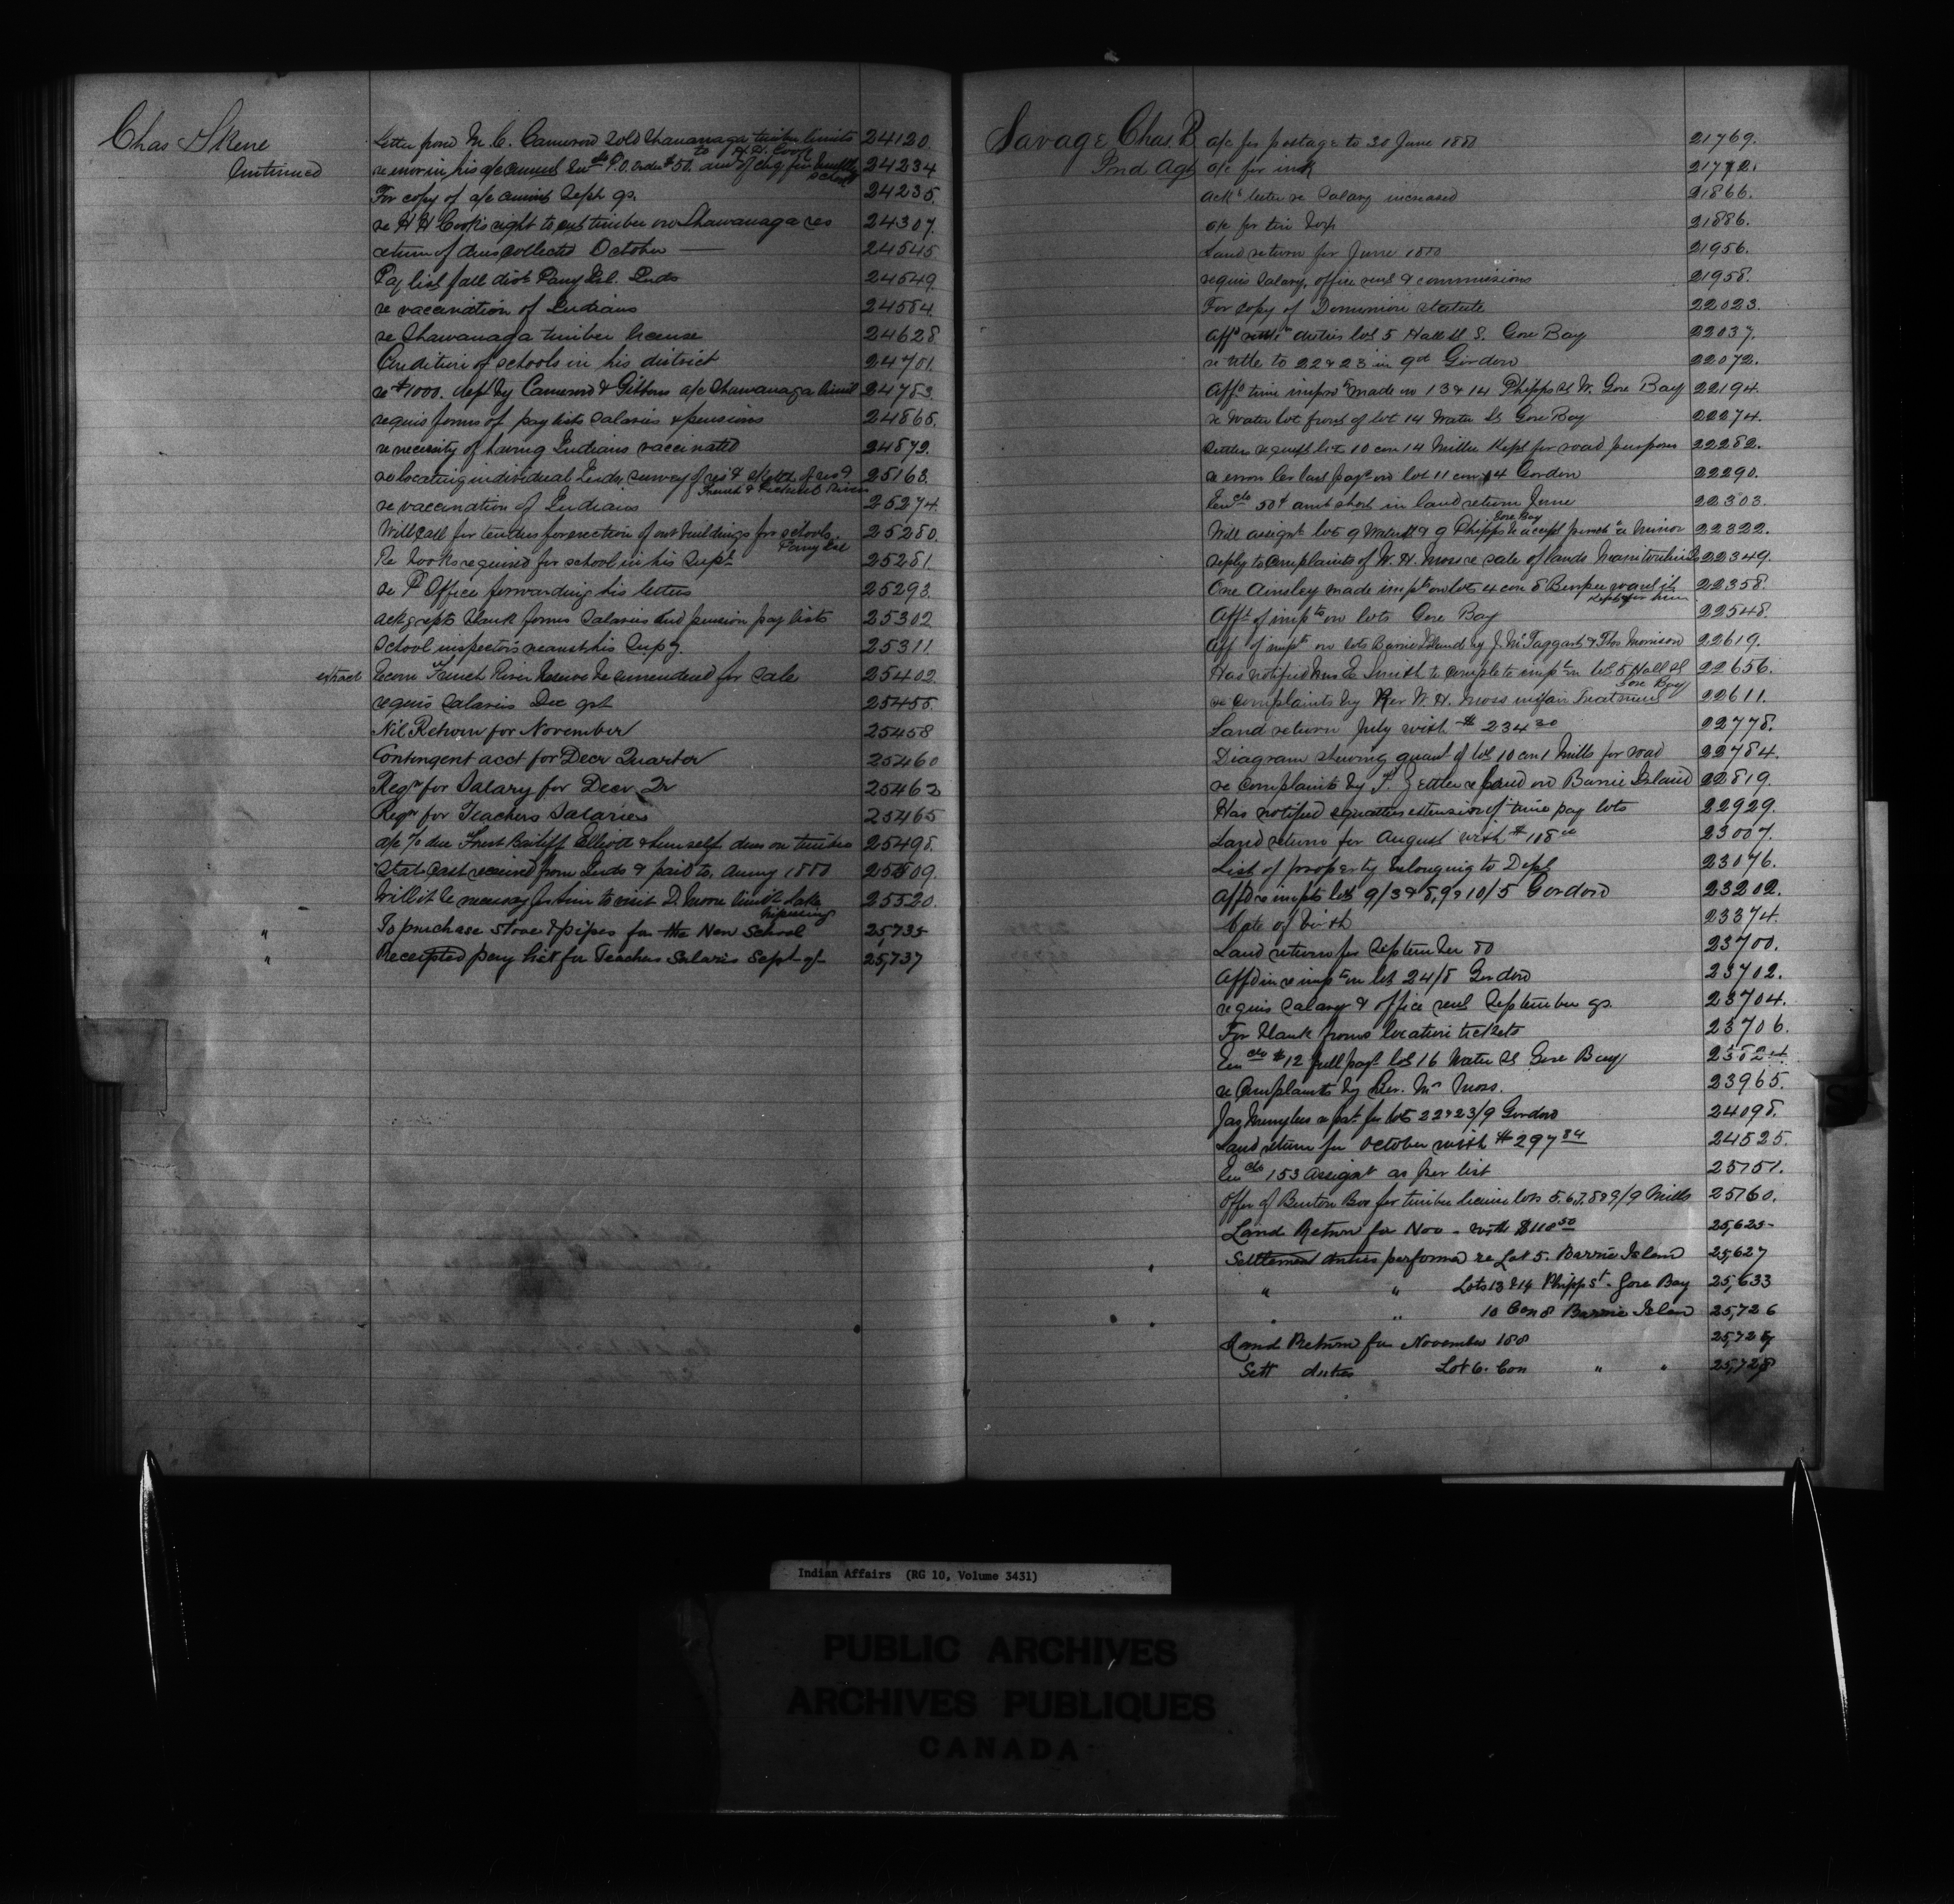 Chas Skene
Continued
Letter from M. C. Cameron sold Shawanaga timber limits to H.H. Cook 24120.
re error in his a/c current Encl P.O. order $50. 24234
For copy of a/c current Septr qr. 24235.
re H H Cook's right to cut timber on Shawanaga res 24307.
return of dues collected October 24545.
Pay list fall dist Parry Isl. Inds 24549.
re vaccination of Indians 24584.
re Shawanaga timber license 24628.
Condition of schools in his district 24701.
re $1000. depd by Cameron & Gibbons a/c Shawanaga limit 24783.
requis forms of pay lists salaries & pensions 24865.
re necessity of having Indians vaccinated 24872.
re locating individual Inds survey of res & sketch of res 25163.
re vaccination of Indians 25274.
Will call for tenders for erection of out buildings for schools Parry Isl 25280.
Re books required for school in his Supt 25281.
re P Office forwarding his letters 25293.
ackg rcpts blank forms salaries and pension pay lists 25302
School inspectors nearest his Supy. 25311.
extract Recom French River Reserve be surrendered for sale 25402.
requis salaries Dec qrt 25455.
Nil Return for November 25458
Contingent acct for Decr Quarter 25460
Reqn for Salary for Decr Qr 25462
Reqn for Teachers Salaries 25465
a/c % due Forest Bailiff Elliott & himself dues on timber 25498.
Stat. Cash received from Inds & paid to, during 1880 25509.
Will it be necessary for him to visit D. Moore limit Lake Nipissing 25520.
" To purchase stove & pipes for the New School 25,735
" Receipted pay list for Teachers Salaries Sept qr 25,737
Savage Chas. B
Ind Agt
a/c for postage to 30 June 1880 21769.
a/c for ink 21772.
ackg letter re Salary increased 21866.
a/c for tin box 21886.
Land return for June 1880 21956.
requis salary, office rent & commissions 21958.
For copy of Dominion statute 22023.
Affd duties lot 5 Hall St S. Gore Bay 22037.
re title to 22 & 23 in 9th Gordon 22072.
Affd time improvts made on 13 & 14 Phipps St W. Gore Bay 22194.
re water lot front of lot 14 Water St Gore Bay 22274.
Settlers request lot 10 con 14 Mills kept for road purposes 22282.
re error last payt on lot 11 con 4 Gordon 22290.
Enclo 50¢ amt short in land return June 22303.
Will assignt lot 9 Water St & 9 Phipps Gore Bay be accept 22322.
reply to complaints of W. H. Moss re sale of lands Manitoulin 22349.
One Ainsley made impts on lots 4 con 8 Burpee want it kept for him 22358.
Affd of impts on lots Gore Bay 22548.
Aff of impts on lots Barrie Island by J. McTaggart & Thos Morrison 22619.
Has notified Smith to complete impts on lot 5 Hall St Gore Bay 22656.
re complaints by Rev W. H. Moss unfair treatment 22611.
Land return July with $234 30 22778.
Diagram showing quant of lot 10 con 1 Mills for road 22784.
re complaints by Settler re land on Barrie Island 22819.
Has notified squatters extension of time pay lots 22929.
Land return for August with $118 23007.
List of property belonging to Dept 23076.
Affd re impts lots 9/3 & 8, 9 & 10/5 Gordon 23202.
Date of birth 23374.
Land return for September 80 23700.
Affd re impts on lot 24/8 Gordon 23702.
requis salary & office rent September qr. 23704.
For blank forms location tickets 23706.
Enclo $12 full payt lot 16 Water St Gore Bay 23824
re Complaints by Rev. Mr Moss. 23965.
Jas re pat for lots 22 & 23/9 Gordon 24098.
Land return for October with $297 84 24525.
Enclo 153 assignt as per list 25151.
Offer of Benton for timber license lots 5.6.7.8 & 9/9 Mills 25160.
Land Return for Nov - with $118 50 25,625
Settlement duties performed re Lot 5. Barrie Island 25,627
" " Lots 13 & 14 Phipp St. Gore Bay 25,633
" " 10 Con 8 Barrie Islan 25,726
Land Return for November 188 25,727
Sett duties Lot 6. Con " " 25,728
Indian Affairs (RG 10, Volume 3431)
PUBLIC ARCHIVES
ARCHIVES PUBLIQUES
CANADA